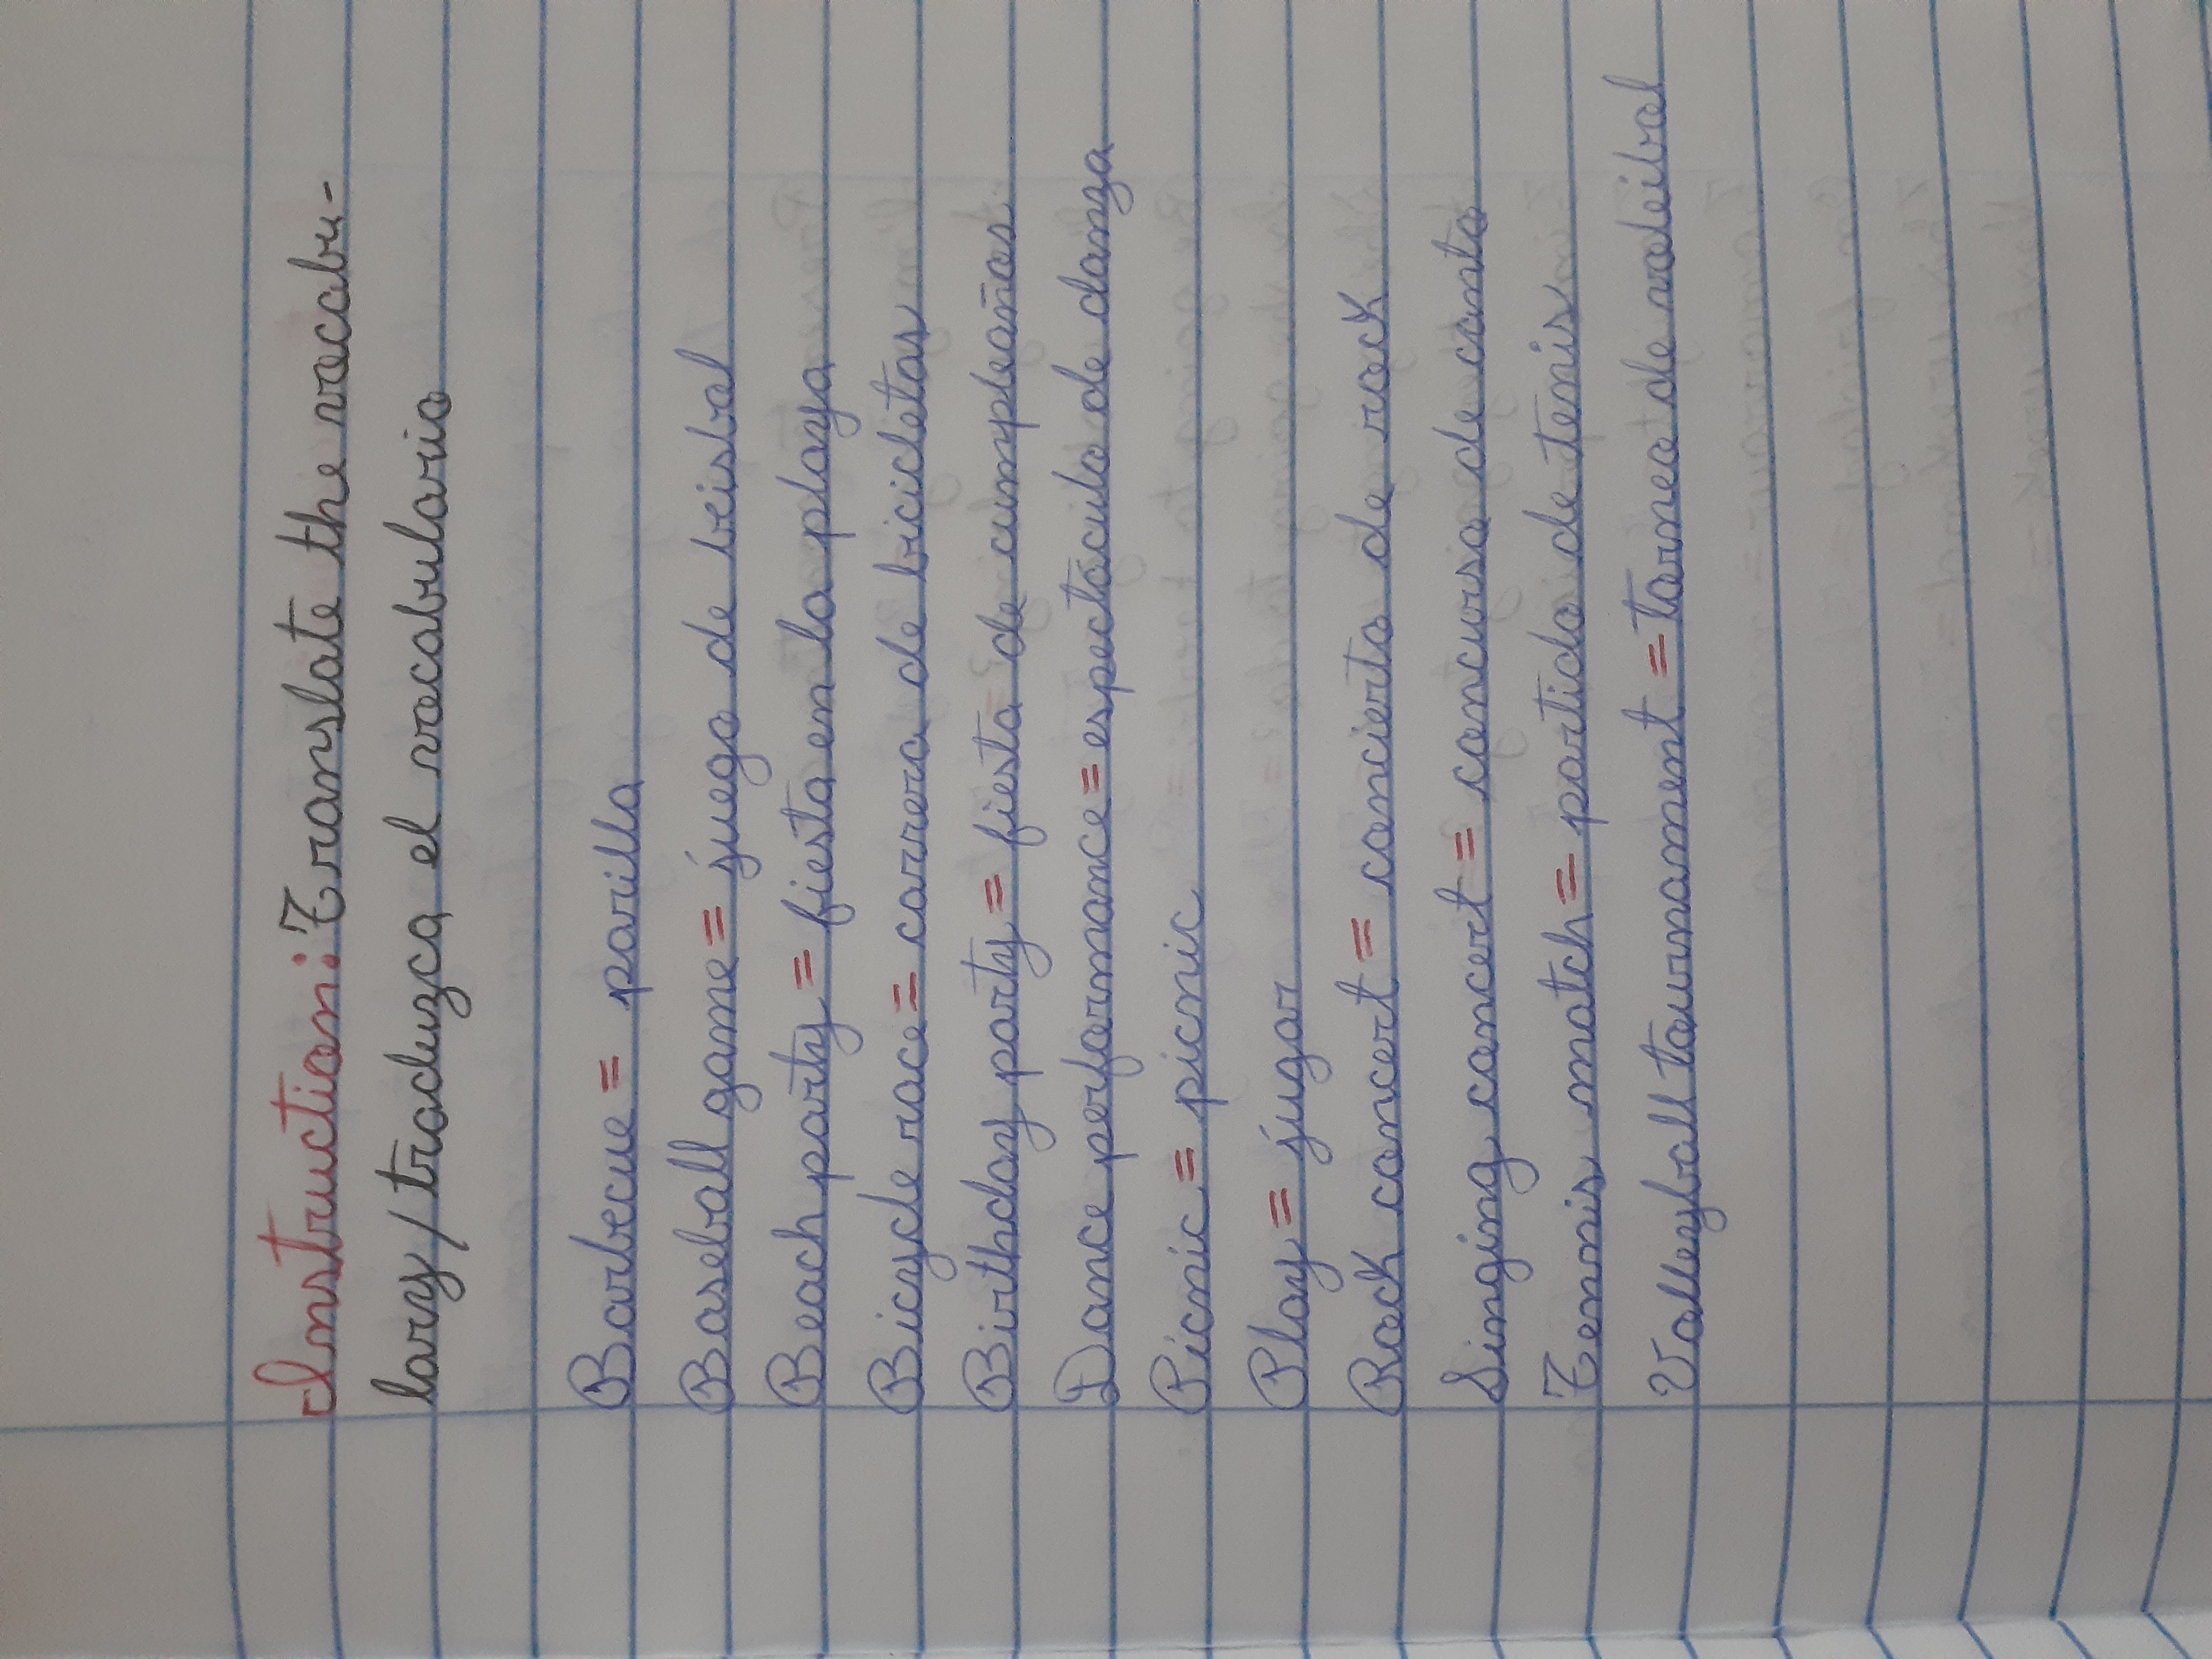 Instruction: Translate the vocabu-
lary/traduzca el vocabulario
Barbecue = parilla
Baseball game = juego de beisbol
Beach party = fiesta en la playa
Bicycle race = carrera de bicicletas
Birthday party = fiesta de cumpleaños.
Dance performance = espectáculo de danza
Picnic = picnic
Play = jugar
Rock concert = concierto de rock
Singing concert = concurso de canto
Tennis match = partido de tenis
Volleyball tournament = torneo de voleibol